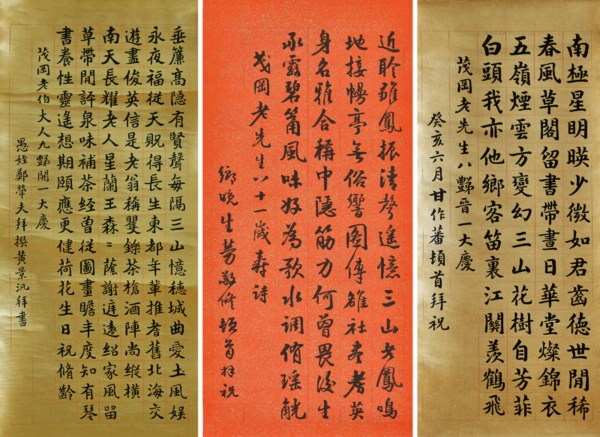 南極星明暎少微如君齒德世間稀
春風草閣留書帶晝日華堂燦錦衣
五嶺煙雲方變幻三山花樹自芳菲
白頭我亦他鄉客笛裏江關羨鶴飛
茂岡老先生八豒晉一大慶
癸亥六月甘作蕃頓首拜祝
近聆雛鳳振清聲遙憶三山老鳳鳴
地接幔亭無俗響圖傳雒社盡耆英
身名雅合稱中隱筋力何曾畏後生
承露碧筩風味好為歌水調侑瑤觥
茂岡老先生八十一歲壽詩
鄉晚生敬脩頓首拜祝
垂簾高隱有賢聲每隔三山憶穗城曲愛土風娛
永夜福從天貺得長生東都推耆舊北海交
遊盡俊英信是老翁稱矍鑠茶槍酒陣尚縱橫
南天長耀老人星蘭玉森〻謝庭遠紹家風留
草帶閒評泉味補茶經曾從圖畫瞻丰度知有琴
書養性靈遙想期頤應更健荷花生日祝脩齡
茂岡老伯大人九豒開一大慶
愚姪鄭夫拜撰黃景拜書